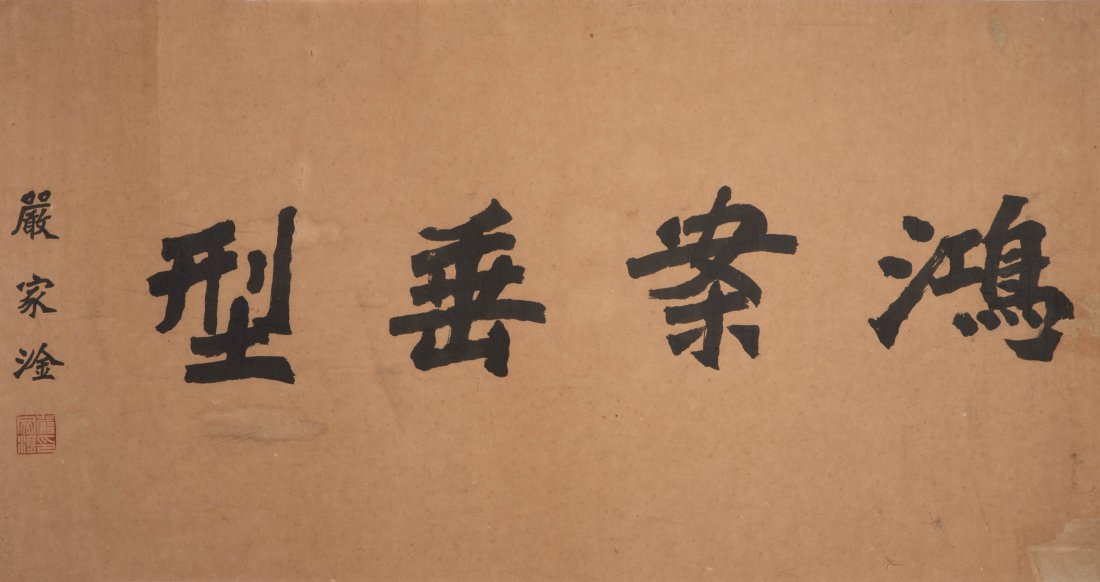 鴻案垂型
嚴家淦